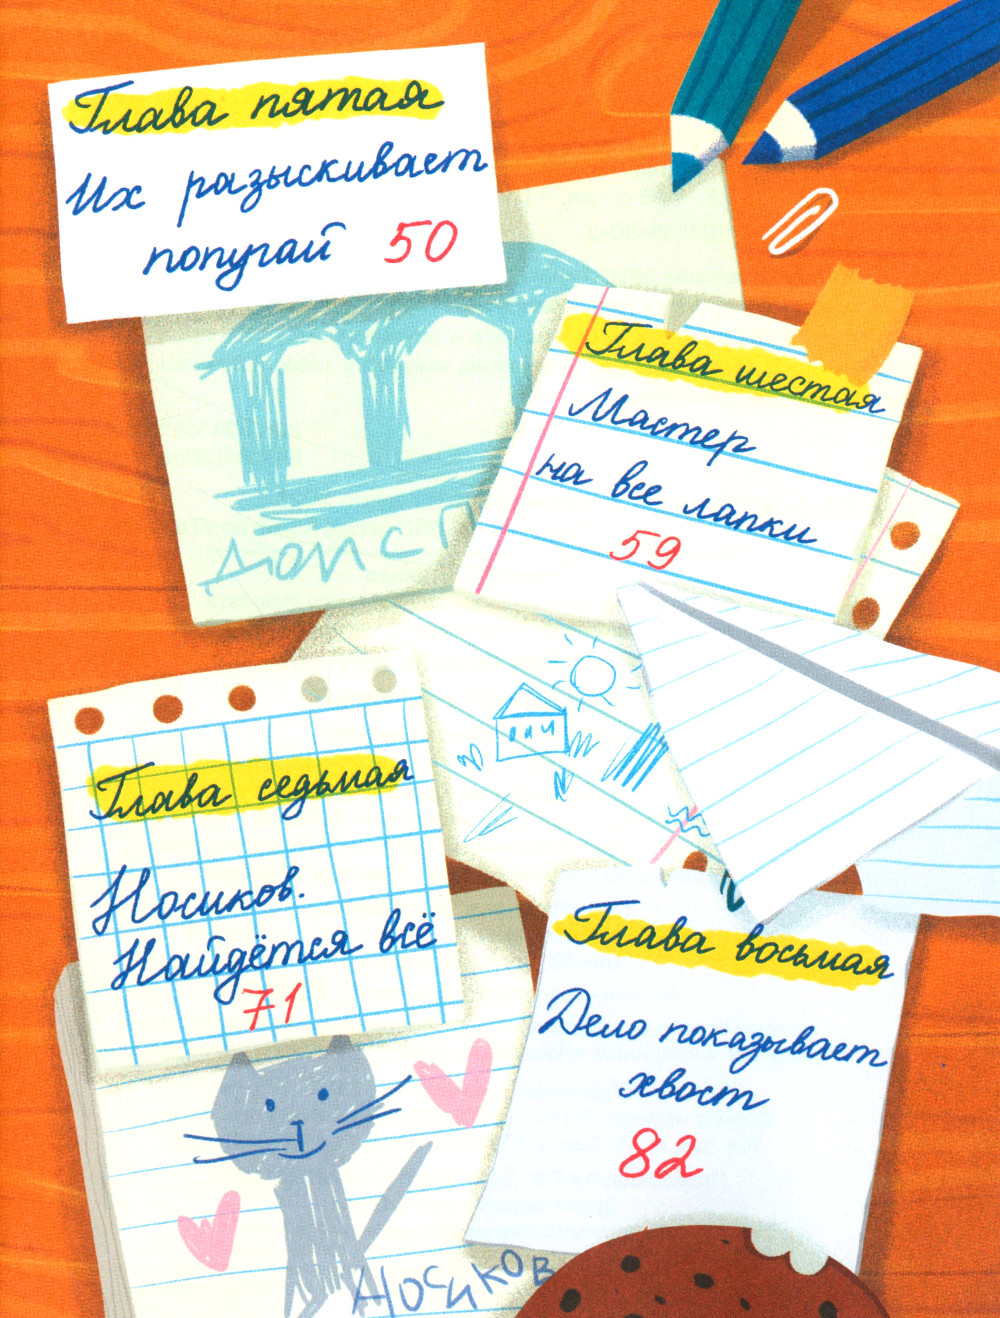 Глава пятая
Их разыскивает
попугай 50
Глава шестая
Мастер
на все лапки
59
Глава седьмая
Носиков.
Найдётся всё
71
Глава восьмая
Дело показывает
хвост
82
Носиков